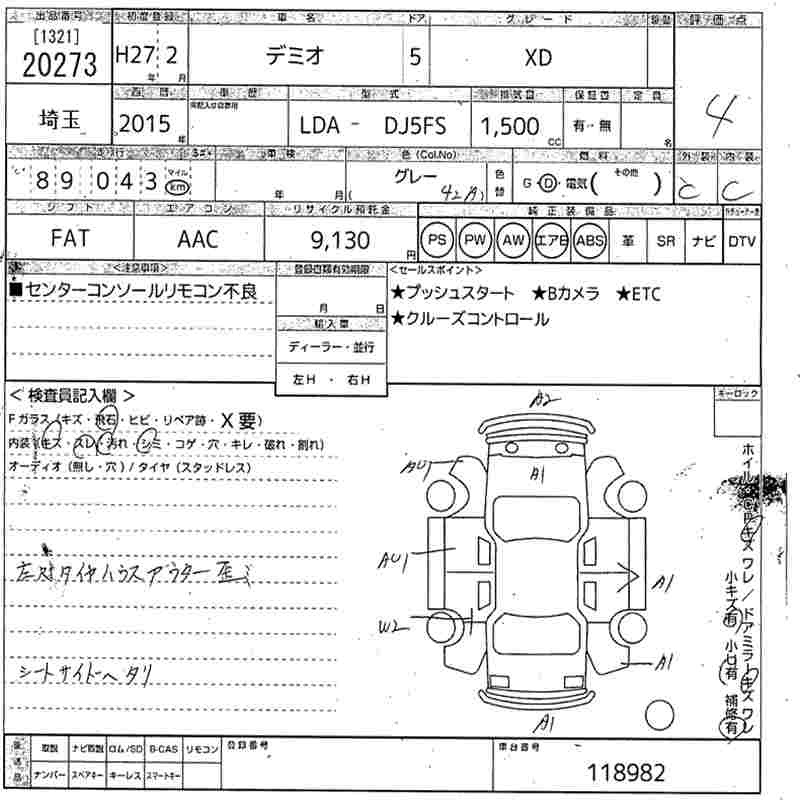 出品番号 初度登録 車名 ドア グレード 評価点
[1321]
20273 H27 2 デミオ 5 XD
年 月
4
西暦 車歴 型式 排気量 保証書 定員
埼玉 2015 年 LDA - DJ5FS 1,500 CC 有・無 名
走行 車検 色(Col.No) 燃料 外装 内装
89043 マイル km 年 月 グレー 42A 色替 G・D・電気( その他 ) C C
シフト エアコン リサイクル預託金 純正装備品
FAT AAC 9,130 円 PS PW AW エアB ABS 革 SR ナビ DTV
<注意事項> 登録書類有効期限 <セールスポイント>
■センターコンソールリモコン不良
月 日
輸入車
ディーラー・並行
左H ・ 右H
★プッシュスタート ★Bカメラ ★ETC
★クルーズコントロール
<検査員記入欄>
キーロック
Fガラス(キズ・飛石・ヒビ・リペア跡・X要)
内装(キズ・スレ・汚れ・シミ・コゲ・穴・キレ・破れ・割れ)
オーディオ(無し・穴)/タイヤ(スタッドレス)
タイヤハウスアウター歪ミ
シートサイドヘタリ
A2
AU1
A1
AU1
A1
W2
A1
A1
キズ ワレ/ドアミラー キズ ワレ
小キズ有 小凹有 補修有
取説 ナビ取説 ロム/SD B-CAS リモコン
ナンバー スペアキー キーレス スマートキー
登録番号
車台番号
118982